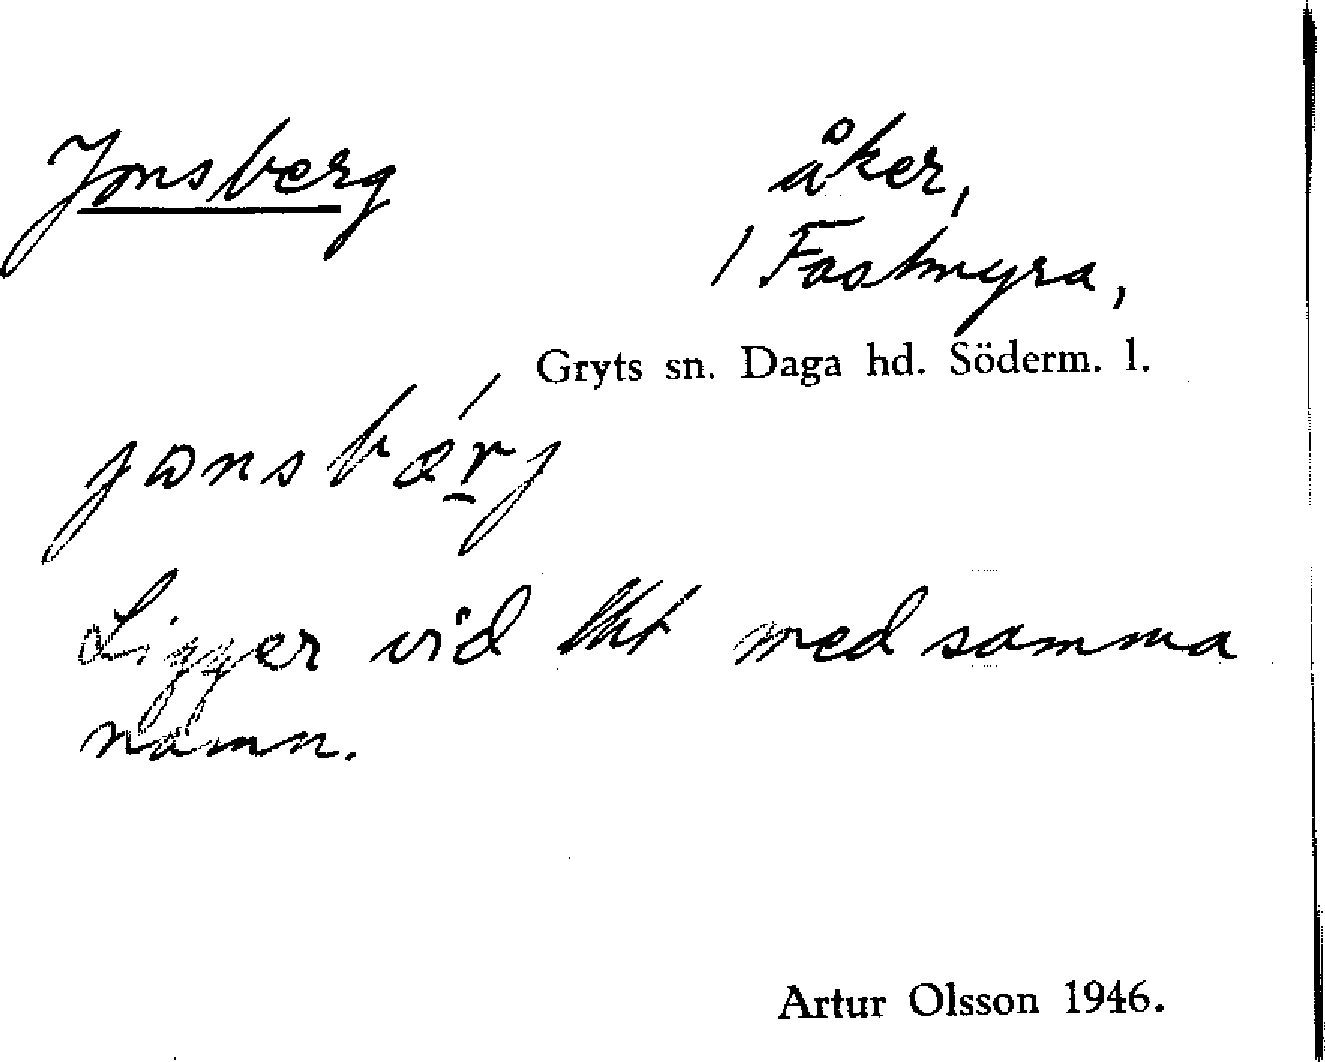 Jonsberg
åker,
/ Fastmyra,
Gryts sn. Daga hd. Söderm. l.
jonsbær̲j
Ligger vid tht med samma
namn.
Artur Olsson 1946.